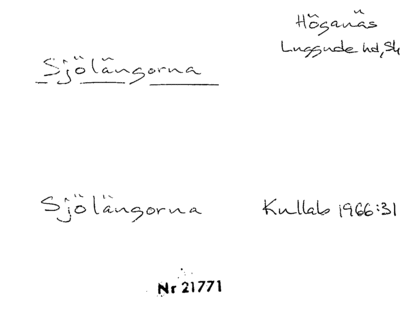 Höganäs
Luggude hd, Sk
Sjölängorna
Sjölängorna Kullab 1966:31
Nr 21771